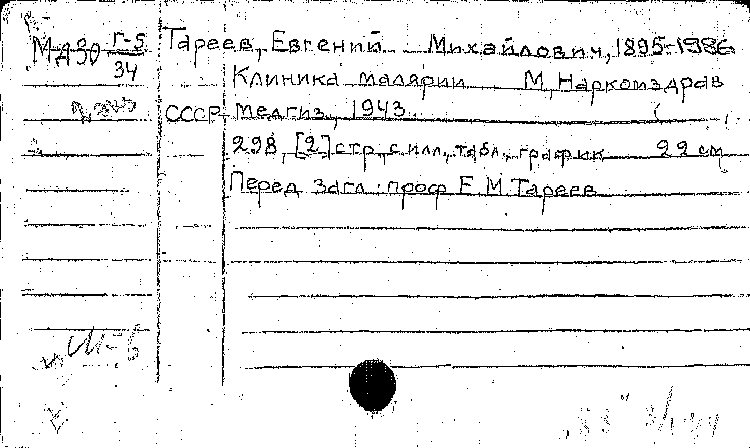 МД30 Г-5/34 Тареев, Евгений Михайлович, 1895-1986
Клиника малярии М, Наркомздрав
СССР Медгиз, 1943.
298, [2] стр, с илл, табл, график 22 см
Перед загл: проф Е. М. Тареев